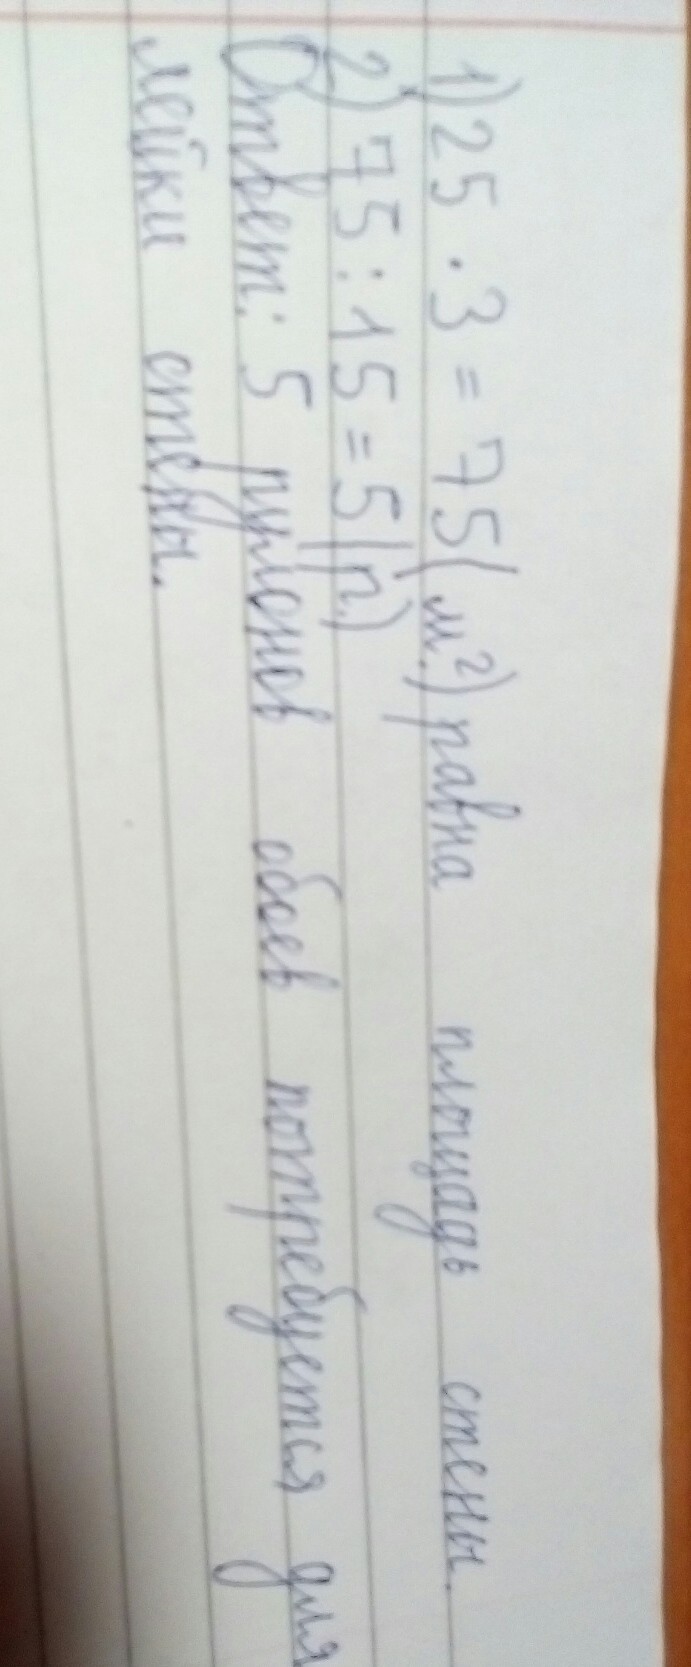 1) 25 · 3 = 75 (м.²) равна площадь стены.
2) 75 : 15 = 5 (р.)
Ответ: 5 рулонов обоев потребуется для
лейки стены.